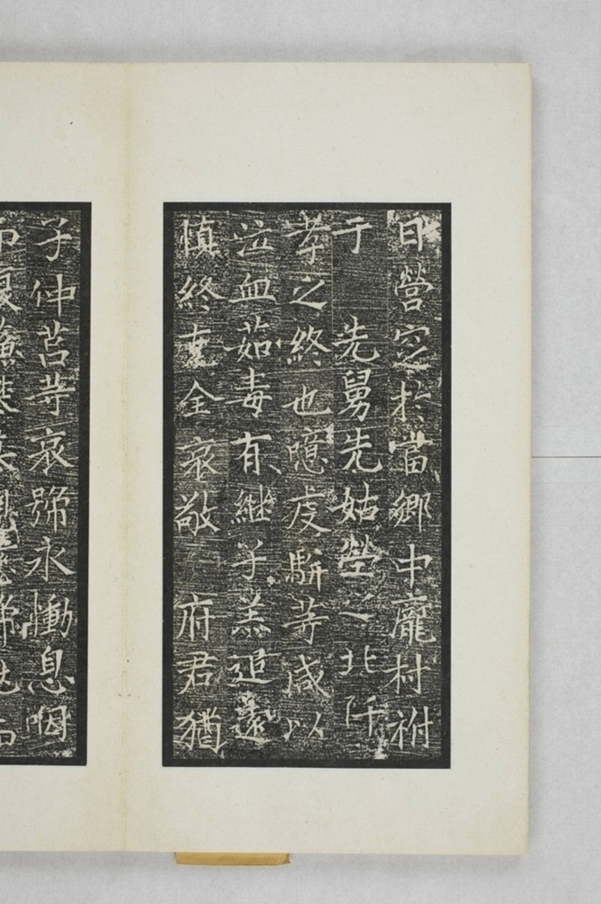 日營窆於當鄉中龐村祔
于先舅先姑塋之北阡
孝之終也噫虔駢等咸以
泣血茹毒有継子羔追遠
慎終克全哀敬府君猶
子仲莒等哀號永慟息咽